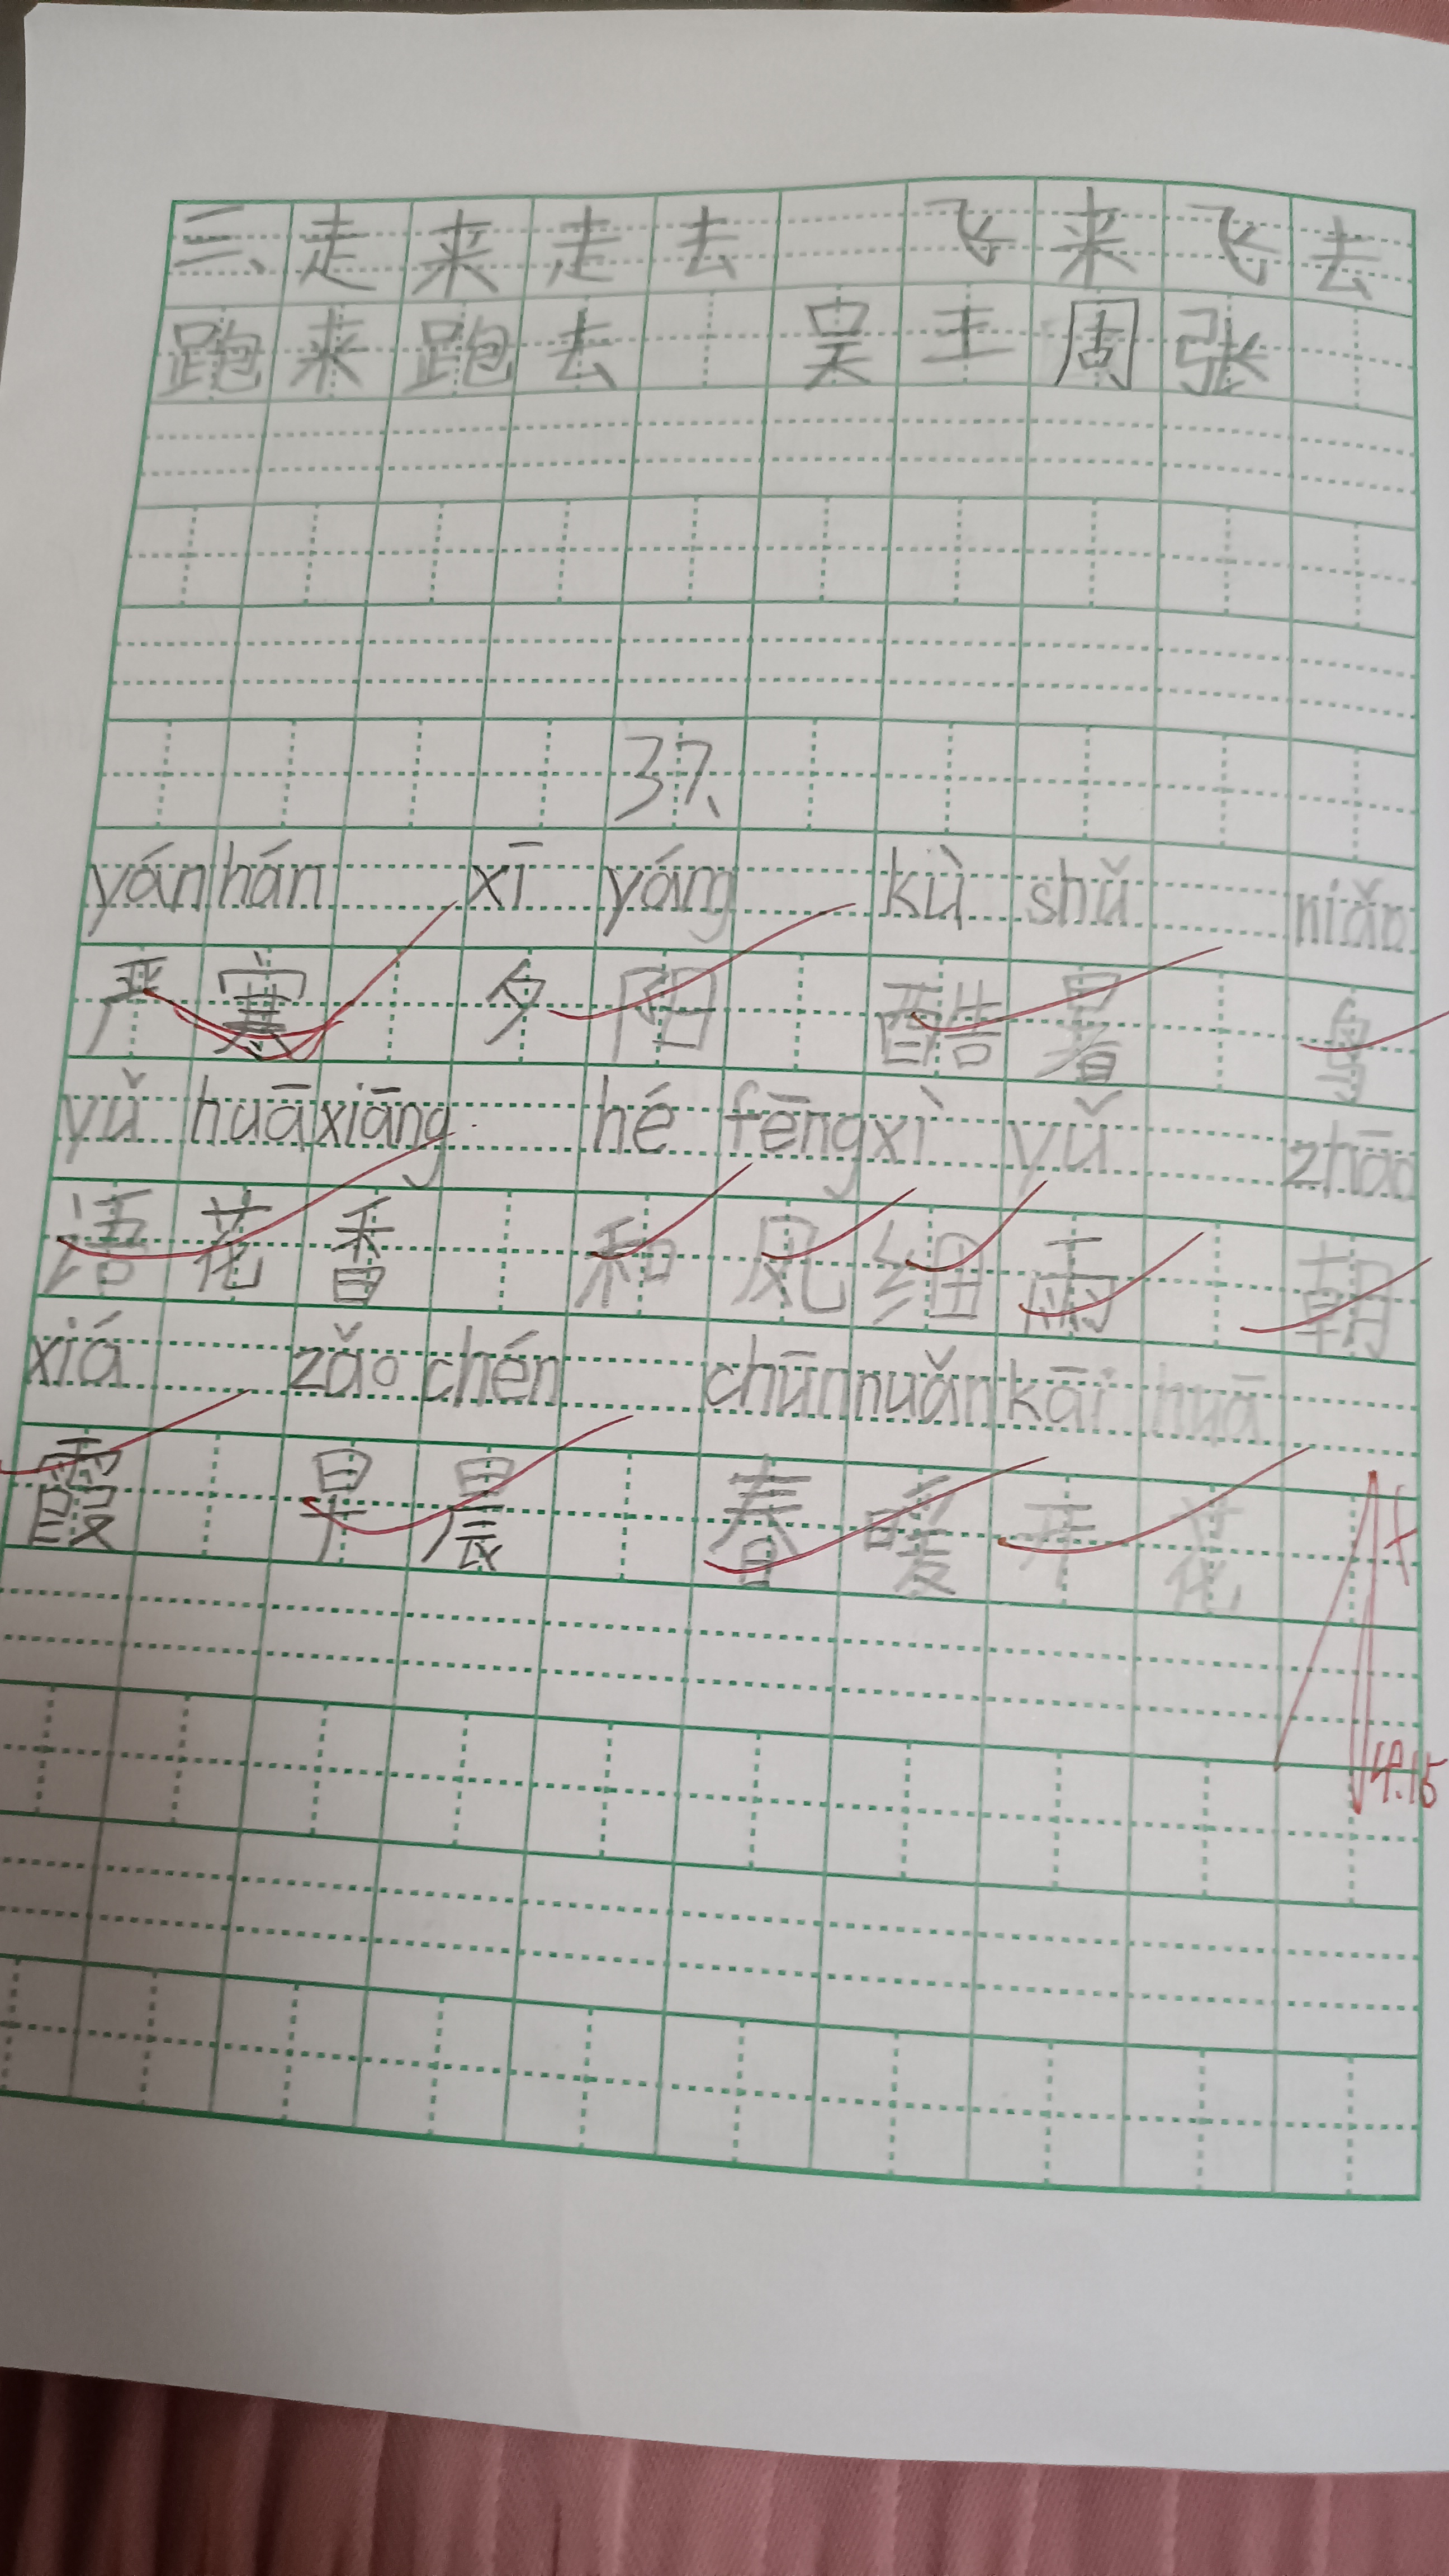 三、走来走去 飞来飞去
跑来跑去 吴王周张
37、
yán hán xī yáng kù shǔ niǎo
严寒 夕阳 酷暑 鸟
yǔ huā xiāng hé fēng xì yǔ zhāo
语花香 和风细雨 朝
xiá zǎo chén chūn nuǎn kāi huā
霞 早晨 春暖开花
A+
4.15